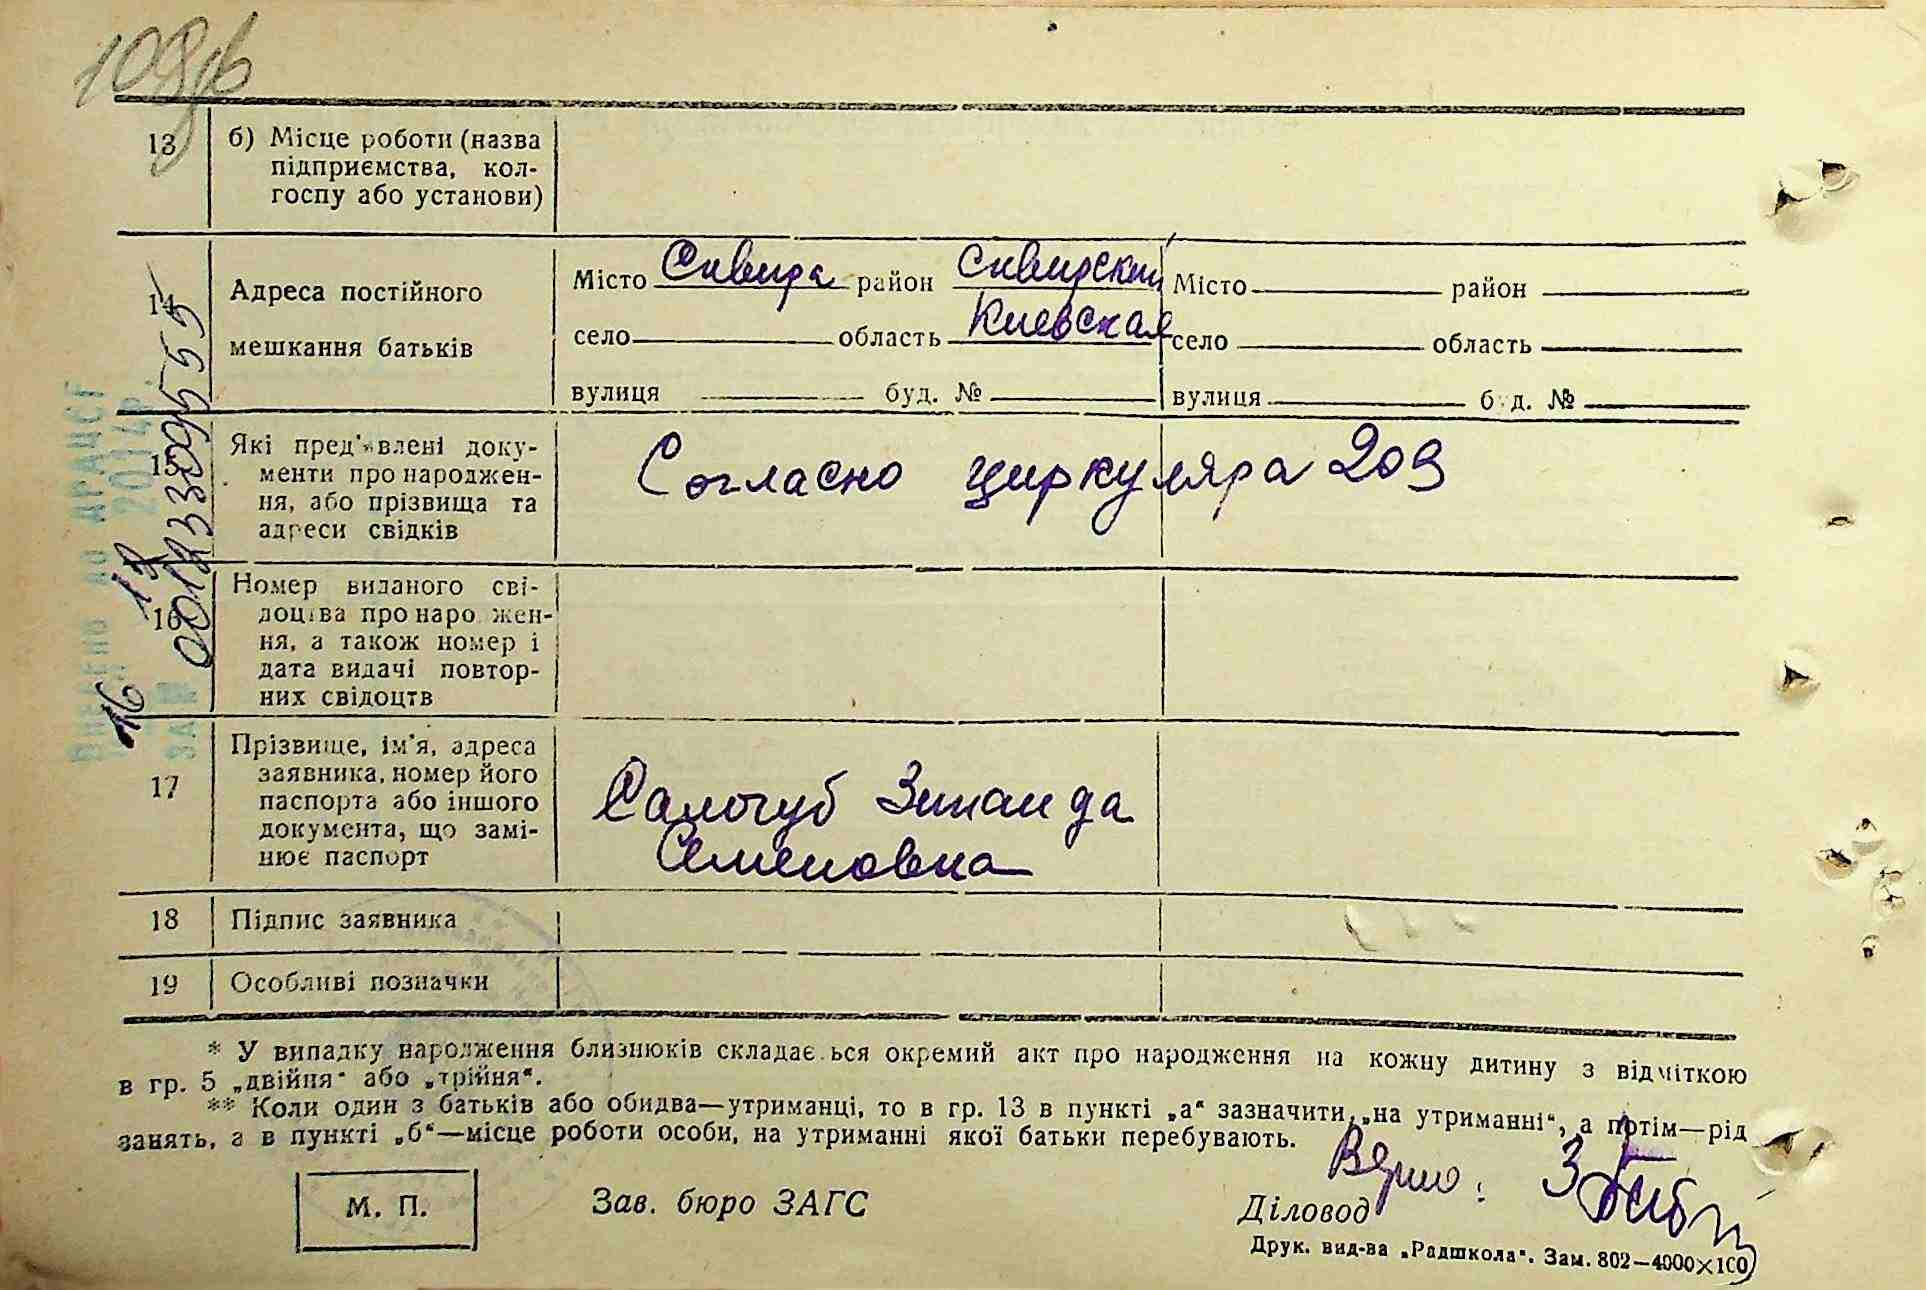 13 б) Місце роботи (назва
підприємства, кол-
госпу або установи)
14 Адреса постійного
мешкання батьків
Місто Сквира район Сквирский
село область Киевская
вулиця буд. №
Місто район
село область
вулиця буд. №
15 Які пред'явлені доку-
менти про народжен-
ня, або прізвища та
адреси свідків
Согласно циркуляра 203
16 Номер виданого сві-
доцтва про народжен-
ня, а також номер і
дата видачі повтор-
них свідоцтв
16 12
00123309555
ДРАЦСГ
2014р.
17 Прізвище, ім'я, адреса
заявника, номер його
паспорта або іншого
документа, що замі-
нює паспорт
Салогуб Зинаида
Семеновна
18 Підпис заявника
19 Особливі позначки
* У випадку народження близнюків складається окремий акт про народження на кожну дитину з відміткою
в гр. 5 „двійня" або „трійня".
** Коли один з батьків або обидва—утриманці, то в гр. 13 в пункті „а" зазначити „на утриманні", а потім—рід
занять, а в пункті „б"—місце роботи особи, на утриманні якої батьки перебувають.
Верно:
М. П.
Зав. бюро ЗАГС
Діловод
Друк. вид-ва „Радшкола". Зам. 802—4000×100